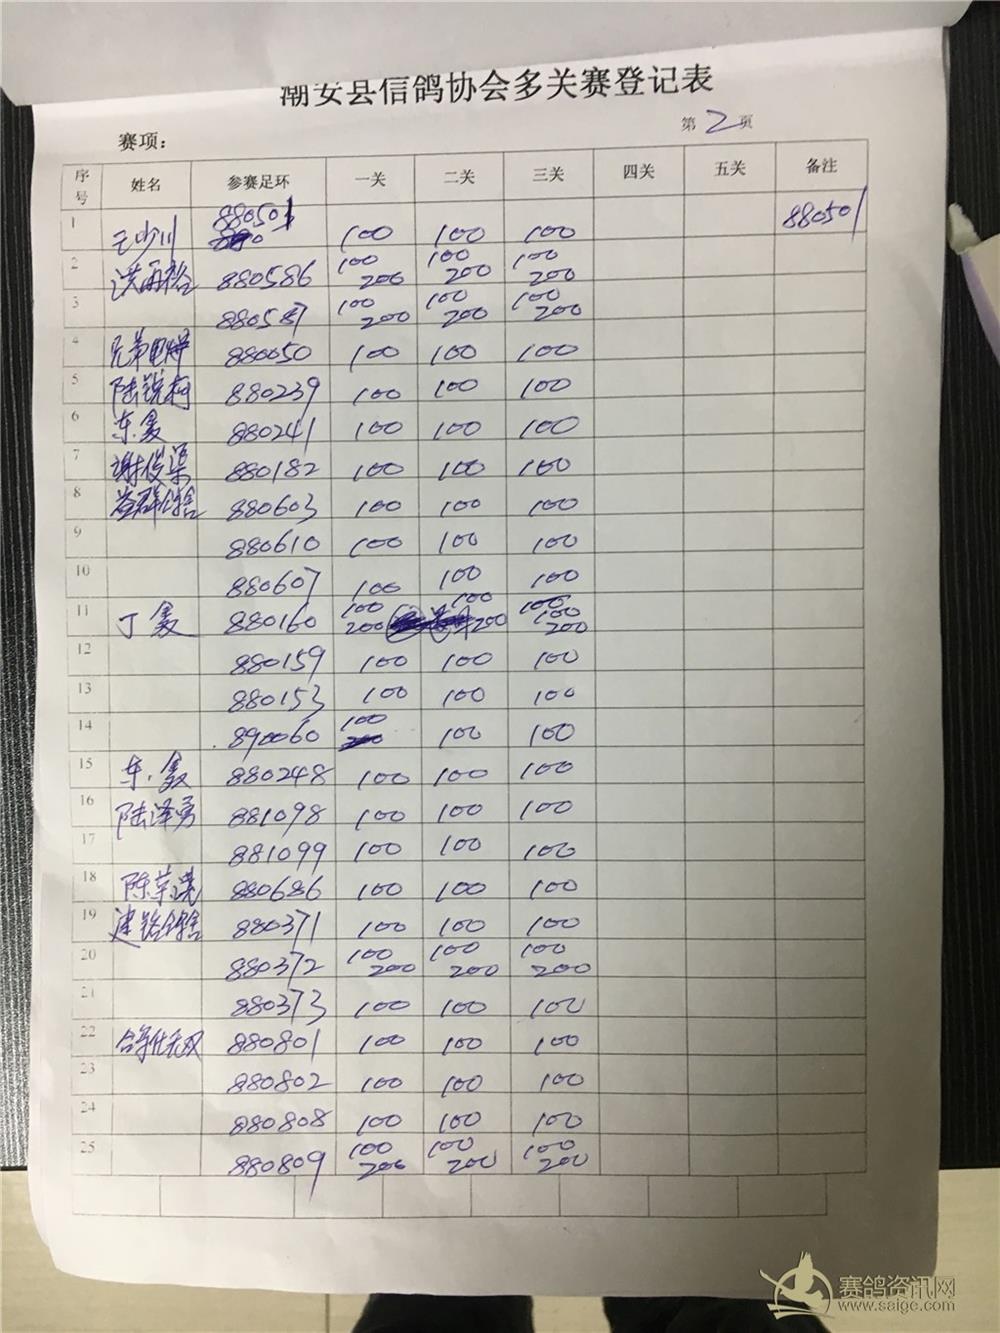 潮安县信鸽协会多关赛登记表
赛项： 第 2 页
序号 姓名 参赛足环 一关 二关 三关 四关 五关 备注
1 880501 100 100 100 880501
2 洪再裕 880586 100 200 100 200 100 200
3 880587 100 200 100 200 100 200
4 880050 100 100 100
5 陆锐柯 880239 100 100 100
6 880241 100 100 100
7 谢俊渠 880182 100 100 100
8 880603 100 100 100
9 880610 100 100 100
10 880607 100 100 100
11 880160 100 200 100 200 100 100 200
12 880159 100 100 100
13 880153 100 100 100
14 890060 100 100 100
15 880248 100 100 100
16 陆泽勇 881098 100 100 100
17 881099 100 100 100
18 880686 100 100 100
19 880371 100 100 100
20 880372 100 200 100 200 100 200
21 880373 100 100 100
22 880801 100 100 100
23 880802 100 100 100
24 880808 100 100 100
25 880809 100 200 100 200 100 200
赛鸽资讯网
www.saige.com